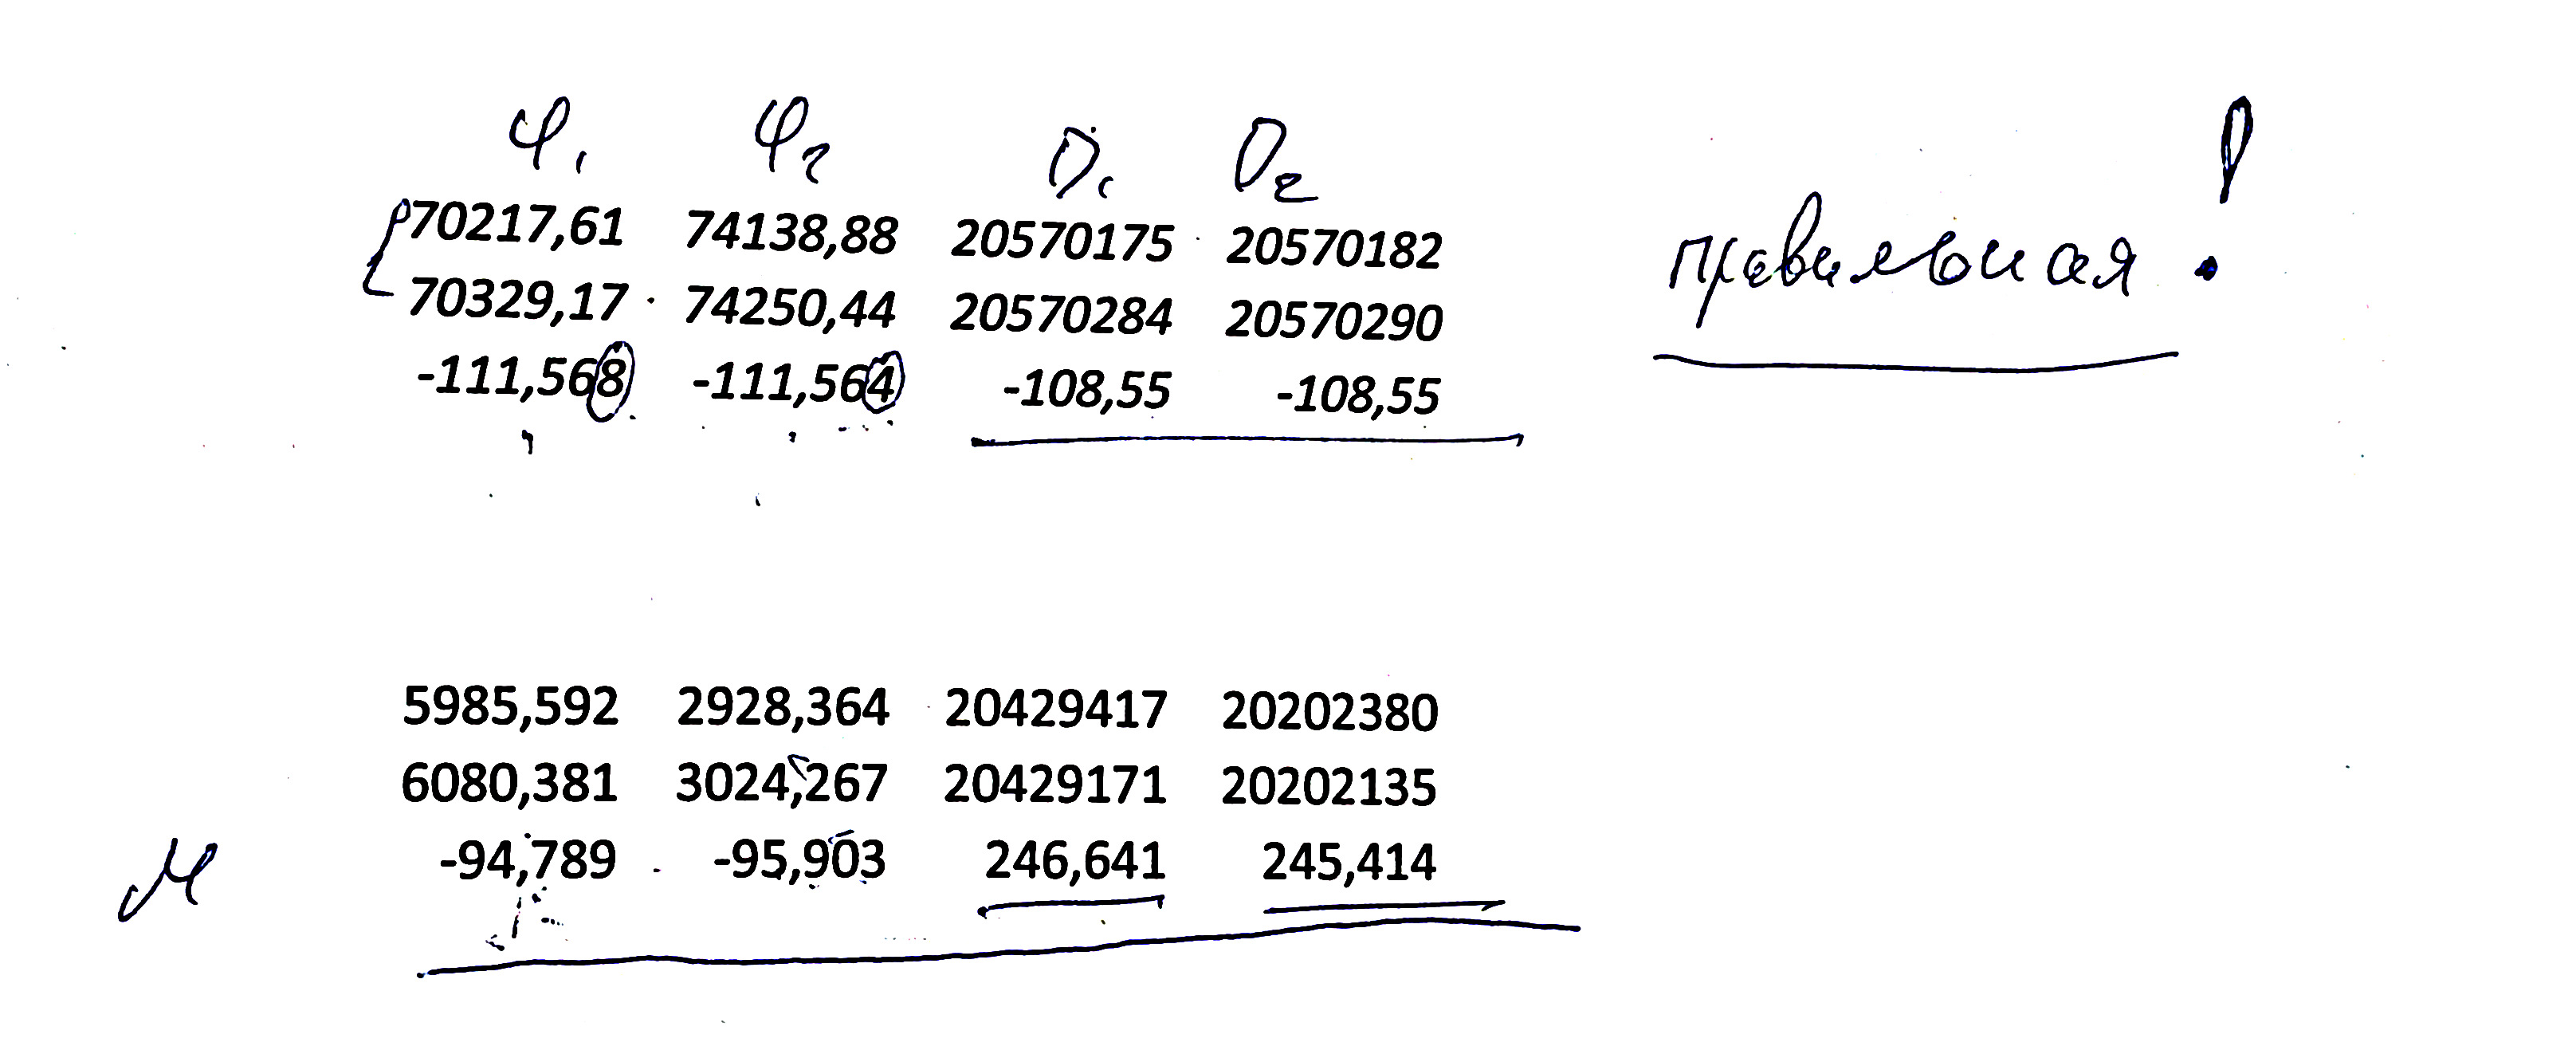 φ₁ φ₂ D₁ D₂
70217,61 74138,88 20570175 20570182 правильная !
70329,17 74250,44 20570284 20570290
-111,568 -111,564 -108,55 -108,55
5985,592 2928,364 20429417 20202380
6080,381 3024,267 20429171 20202135
м -94,789 -95,903 246,641 245,414